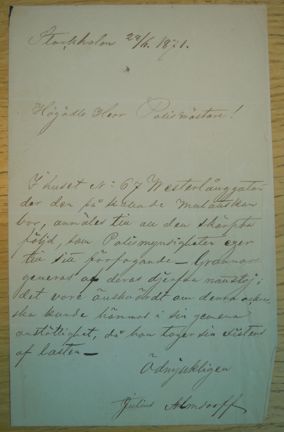 Stockholm 29/6. 1871.
Högädle Herr Polismästare!
I huset No: 67 Westerlånggatan
der den så kallade
bor, anmäles till den skärpta
följd, som Polismyndigheten eger
till sitt förfogande — Grannar
generas af deras djerfva
det vore önskvärdt om denna
ska kunde hämmas i sin genera
anstötlighet, då han tager sin sistens
af lasten —
Ödmjukligen
Julius Almsdorff